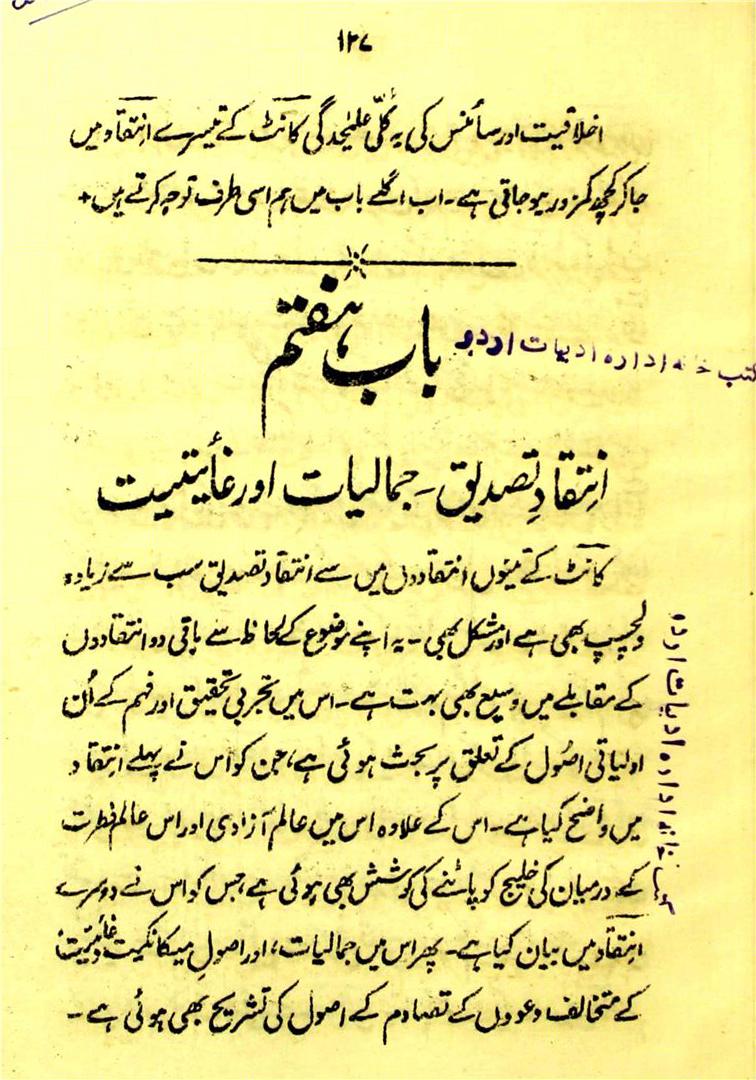 ۱۲۷
اخلاقیت اور سائنس کی یہ کُلّی علیٰحدگی کانٹ کے تیسرے انتقاد میں
جا کر کچھ کمزور ہو جاتی ہے۔ اب اگلے باب میں ہم اسی طرف توجہ کرتے ہیں+
باب ہفتم
کتب خانہ ادارہ ادبیات اردو
اِنتقادِ تصدیق۔ جمالیات اور غائیتیت
کانٹ کے تینوں انتقادوں میں سے انتقاد تصدیق سب سے زیادہ
دلچسپ بھی ہے اور مشکل بھی۔ یہ اپنے موضوع کے لحاظ سے باقی دو انتقادوں
کے مقابلے میں وسیع بھی بہت ہے۔ اس میں تجربی تحقیق اور فہم کے اُن
اولیاتی اصُول کے تعلق پر بحث ہوئی ہے، جن کو اس نے پہلے انتقاد
میں واضح کیا ہے۔ اس کے علاوہ اس میں عالم آزادی اور اس عالم فطرت
کے درمیان کی خلیج کو پاٹنے کی کوشش بھی ہوئی ہے، جس کو اس نے دوسرے
اِنتقاد میں بیان کیا ہے۔ پھر اس میں جمالیات، اور اصولِ میکانکیت و غائیتیت،
کے متخالف دعووں کے تصادم کے اصول کی تشریح بھی ہوئی ہے۔
خانہ ادارہ ادبیات اردو